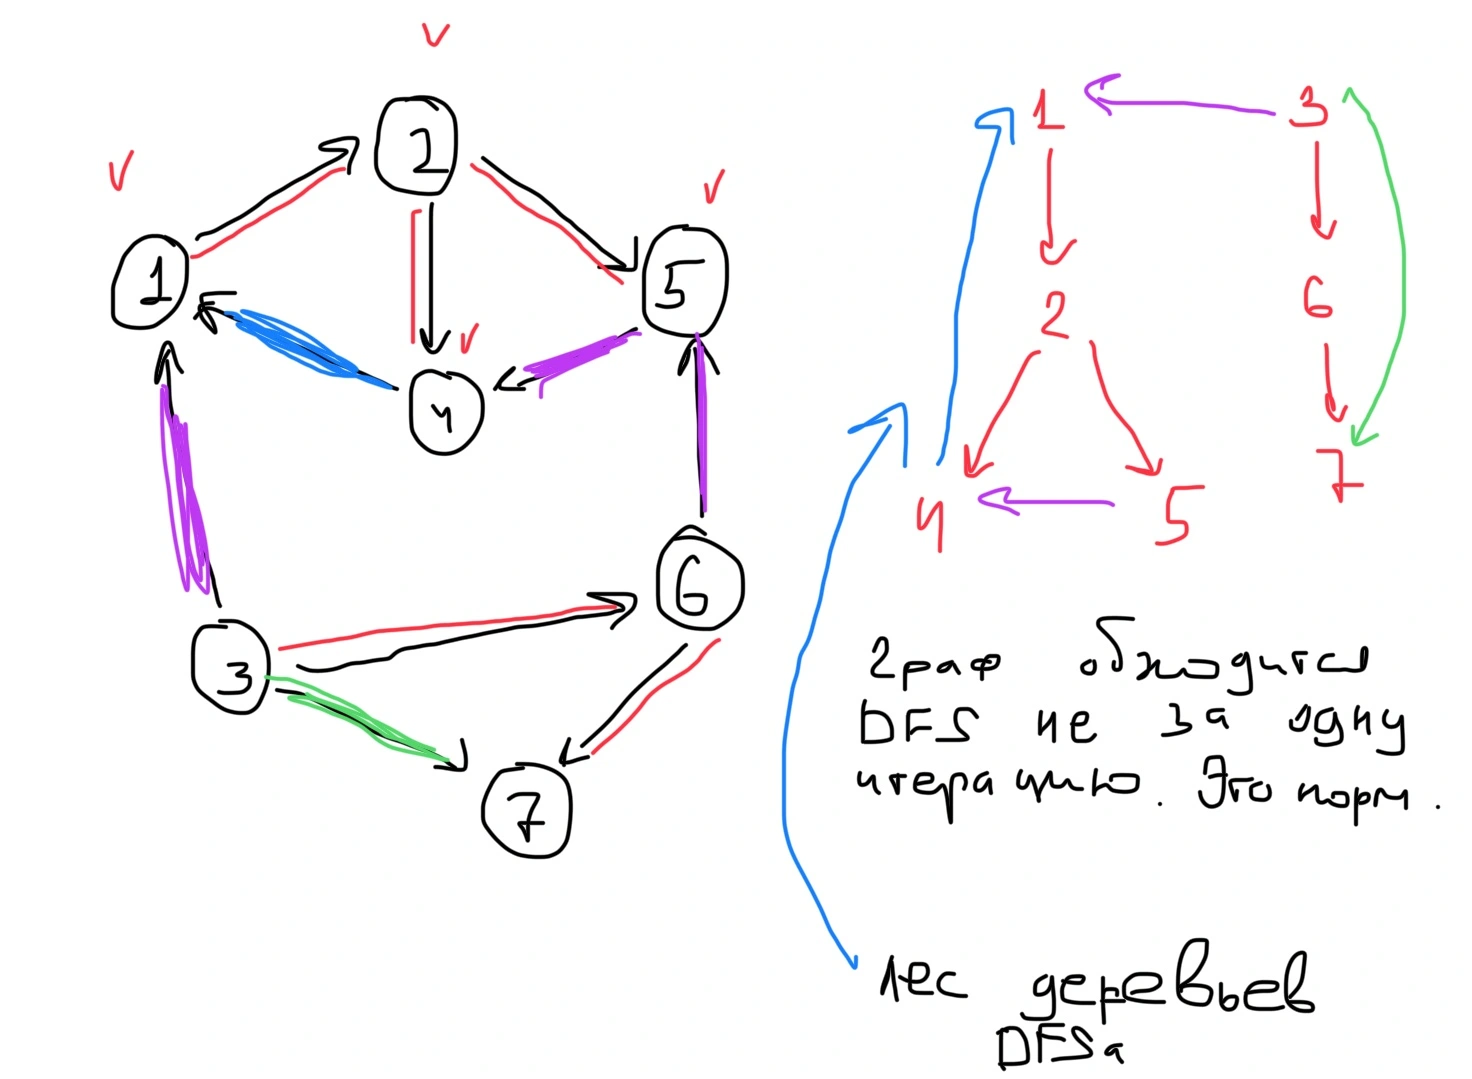 v
2
1
3
v
v
1
5
2
6
v
4
7
4
5
6
3
граф обходится
DFS не за одну
итерацию. Это норм.
7
лес деревьев
DFSа